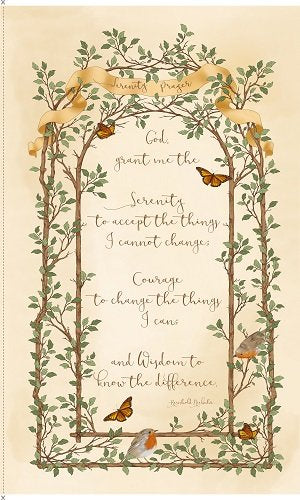 Serenity Prayer
God,
grant me the
Serenity
to accept the things
I cannot change;
Courage
to change the things
I can;
and Wisdom to
know the difference.
Reinhold Niebuhr